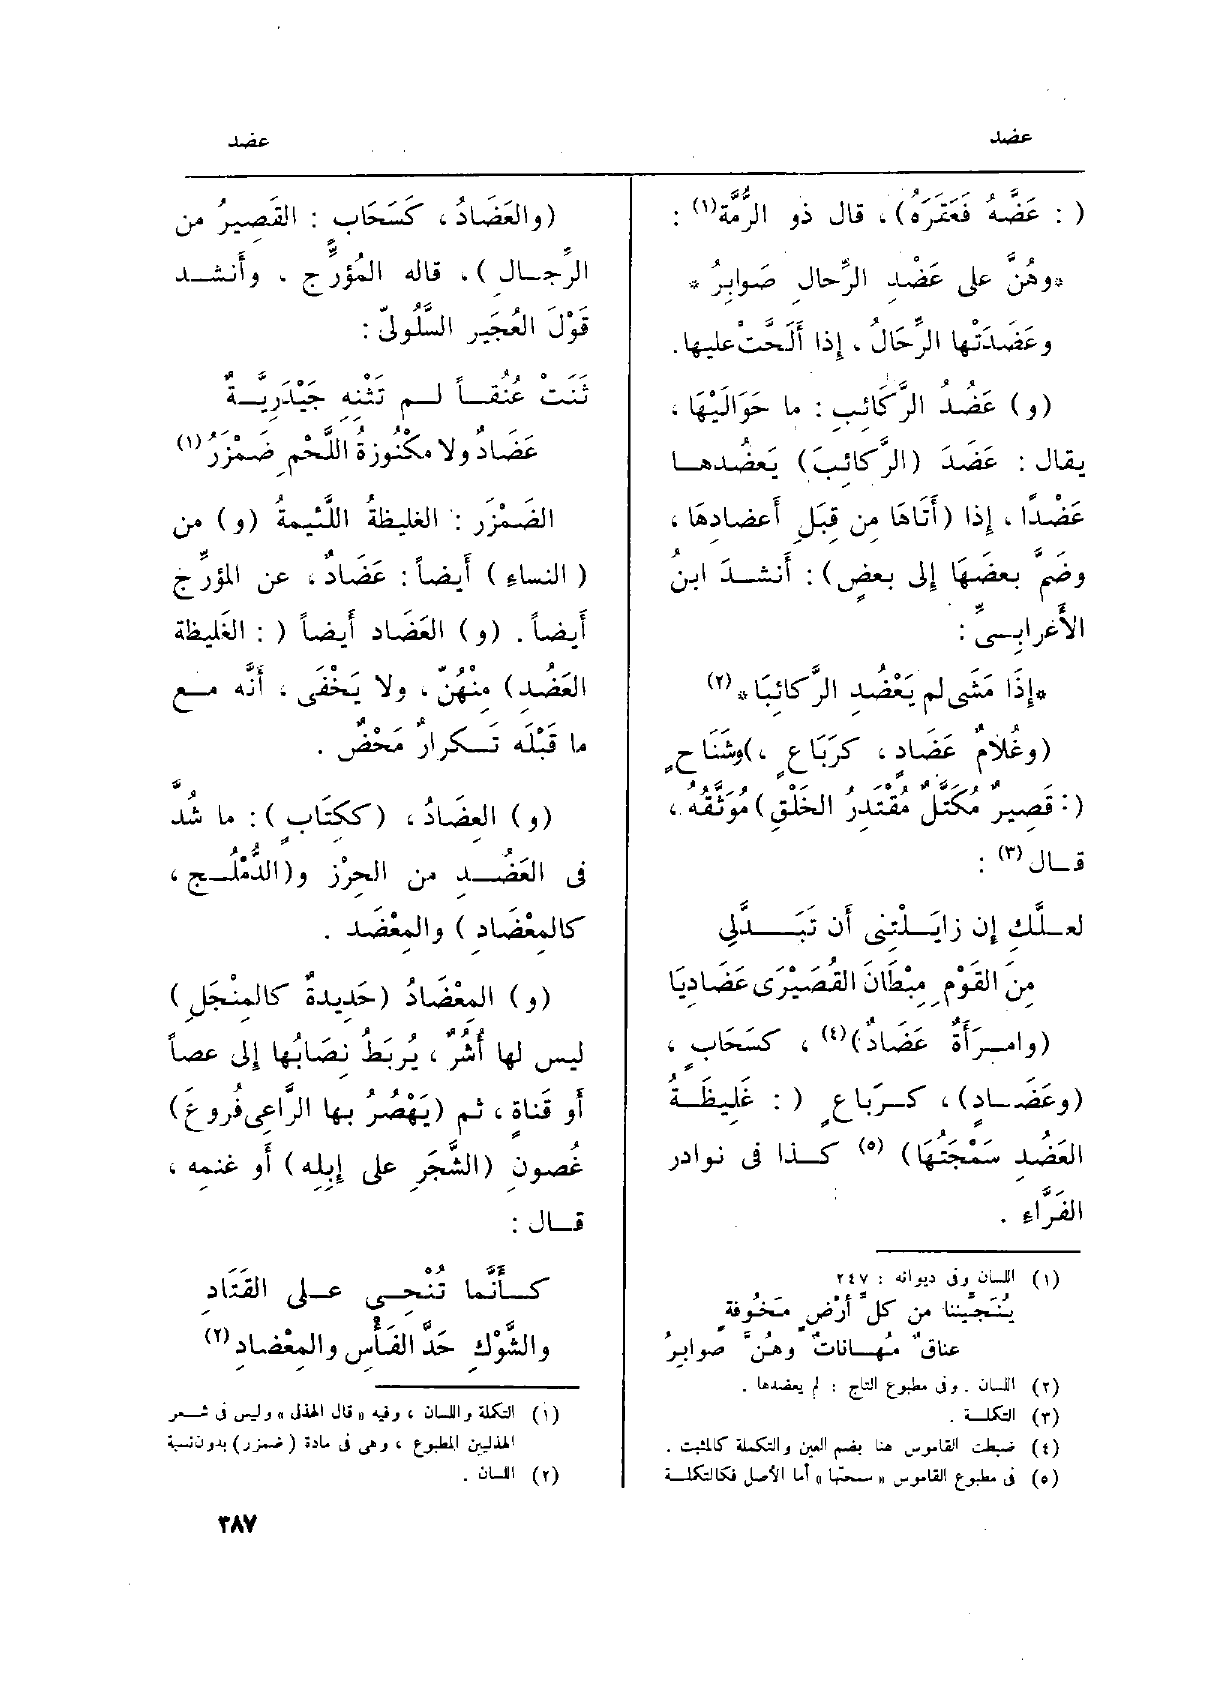 عضد
عضد
( : عَضَّهُ فَعَقَرَهُ) ، قال ذو الرُّمَّة(١) :
*وهُنَّ على عَضْدِ الرِّحالِ صَوابِرُ *
وعَضَدَتْها الرِّحَالُ ، إِذا أَلَحَّتْ عليها.
(و) عَضُدُ الرَّكَائِبِ : ما حَوَالَيْهَا ،
يقال : عَضَدَ (الرَّكائِبَ) يَعضُدهـا
عَضْدًا ، إِذا (أَتَاهَا مِن قِبَلِ أَعضادِهَا ،
وضَمَّ بعضَهَا إِلى بعضٍ) : أَنشـدَ ابنُ
الأَعْرابـىِّ :
*إِذَا مَشَى لم يَعْضُدِ الرَّكائِبَا*(٢)
(وغُلامٌ عَضَادٍ ، كرَبَاعٍ ،)وشَنَاحٍ
( : قَصِيرٌ مُكَتَّلٌ مُقْتَدِرُ الخَلْقِ) مُوَثَّقُهُ ،
قـال (٣) :
لعـلَّكِ إِن زايَـلْتِنِى أَن تَبَـــدَّلِى
مِنَ القَوْمِ مِبْطَانَ القُصَيْرَى عَضَادِيَا
(وامـرَأَةٌ عَضَادٌ)(٤) ، كسَحَابٍ ،
(وعَضَـادٍ) ، كـرَبَاعٍ ( : غَلِيظَـةُ
العَضُدِ سَمْجَتُهَا) (٥) كـذا فى نوادر
الفَرَّاءِ .
(١) اللسان وفى ديوانه : ٢٤٧
يُنَجِّيننا من كلِّ أَرْضٍ مَخُوفةٍ
عتاقٌ مُهـانات وهُنَّ صوابرُ
(٢) اللسان . وفى مطبوع التاج : لم يعضدها .
(٣) التكلـة .
(٤) ضبطت القاموس هنا بضم العين والتكملة كالمثبت .
(٥) فى مطبوع القاموس « سمحتها » أما الأصل فكالتكلـة
(والعَضَادُ ، كَسَحَابٍ : القَصِيرُ من
الرِّجـالِ ) ، قاله المُؤَرِّج ، وأَنشـد
قَوْلَ العُجَيرِ السَّلُولىّ :
ثَنَتْ عُنُقـاً لـم تَثْنِهِ جَيْدَرِيَّـةٌ
عَضَادٌ ولا مكْنُوزةُ اللَّحْمِ ضَمْزَرُ(١)
الضَمْزَر : الغليظةُ اللَّئيمةُ (و) من
( النساءِ ) أَيضاً : عَضَادٌ ، عن المؤرِّج
أَيضاً . (و) العَضَاد أَيضاً ( : الغَلِيظة
العَضُدِ) مِنْهُنّ ، ولا يَخْفَى ، أَنَّه مـع
ما قَبْلَه تَـكرارٌ مَحْضٌ .
(و) العِضَادُ ، (ككِتَابٍ ) : ما شُدَّ
فى العَضُـدِ من الحِرْز و(الدُّمْلُـج ،
كالمِعْضَادِ ) والمِعْضَد .
(و) المِعْضَادُ (حَدِيدةٌ كالمِنْجَلِ)
ليس لها أُشُرٌ ، يُربَطُ نِصَابُها إِلى عصاً
أَو قَناةٍ ، ثم (يَهْصُرُ بها الرَّاعِى فُروعَ)
غُصونِ (الشَّجَرِ على إِبِلِه) أَو غنمِه ،
قـال :
كـأَنَّما تُنْحِـى عـلى القَتَادِ
والشَّوْكِ حَدَّ الفَأْسِ والمِعْضـادِ(٢)
(١) التكلة واللسان ، وفيه « قال الهذلى » وليس فى شـعر
الهذليين المطبوع ، وهى فى مادة ( ضمزر) بدون نسبة
(٢) اللسان .
٣٨٧